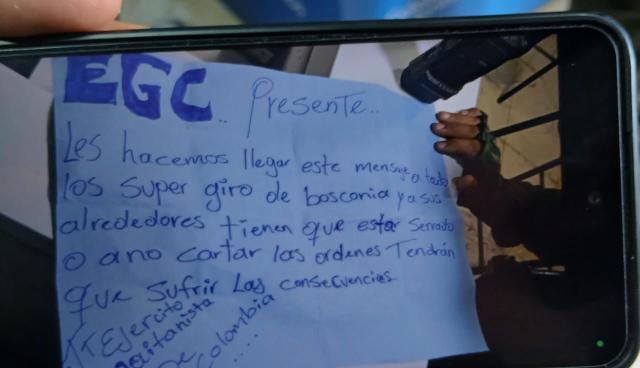 EGC.. Presente..
Les hacemos llegar este mensaje a todos
los super giro de bosconia y a sus
alrededores tienen que estar Serrado
o ano cartar las ordenes Tendrán
que sufrir Las consecuencias
Ejercito
gaitanista
De
colombia
....